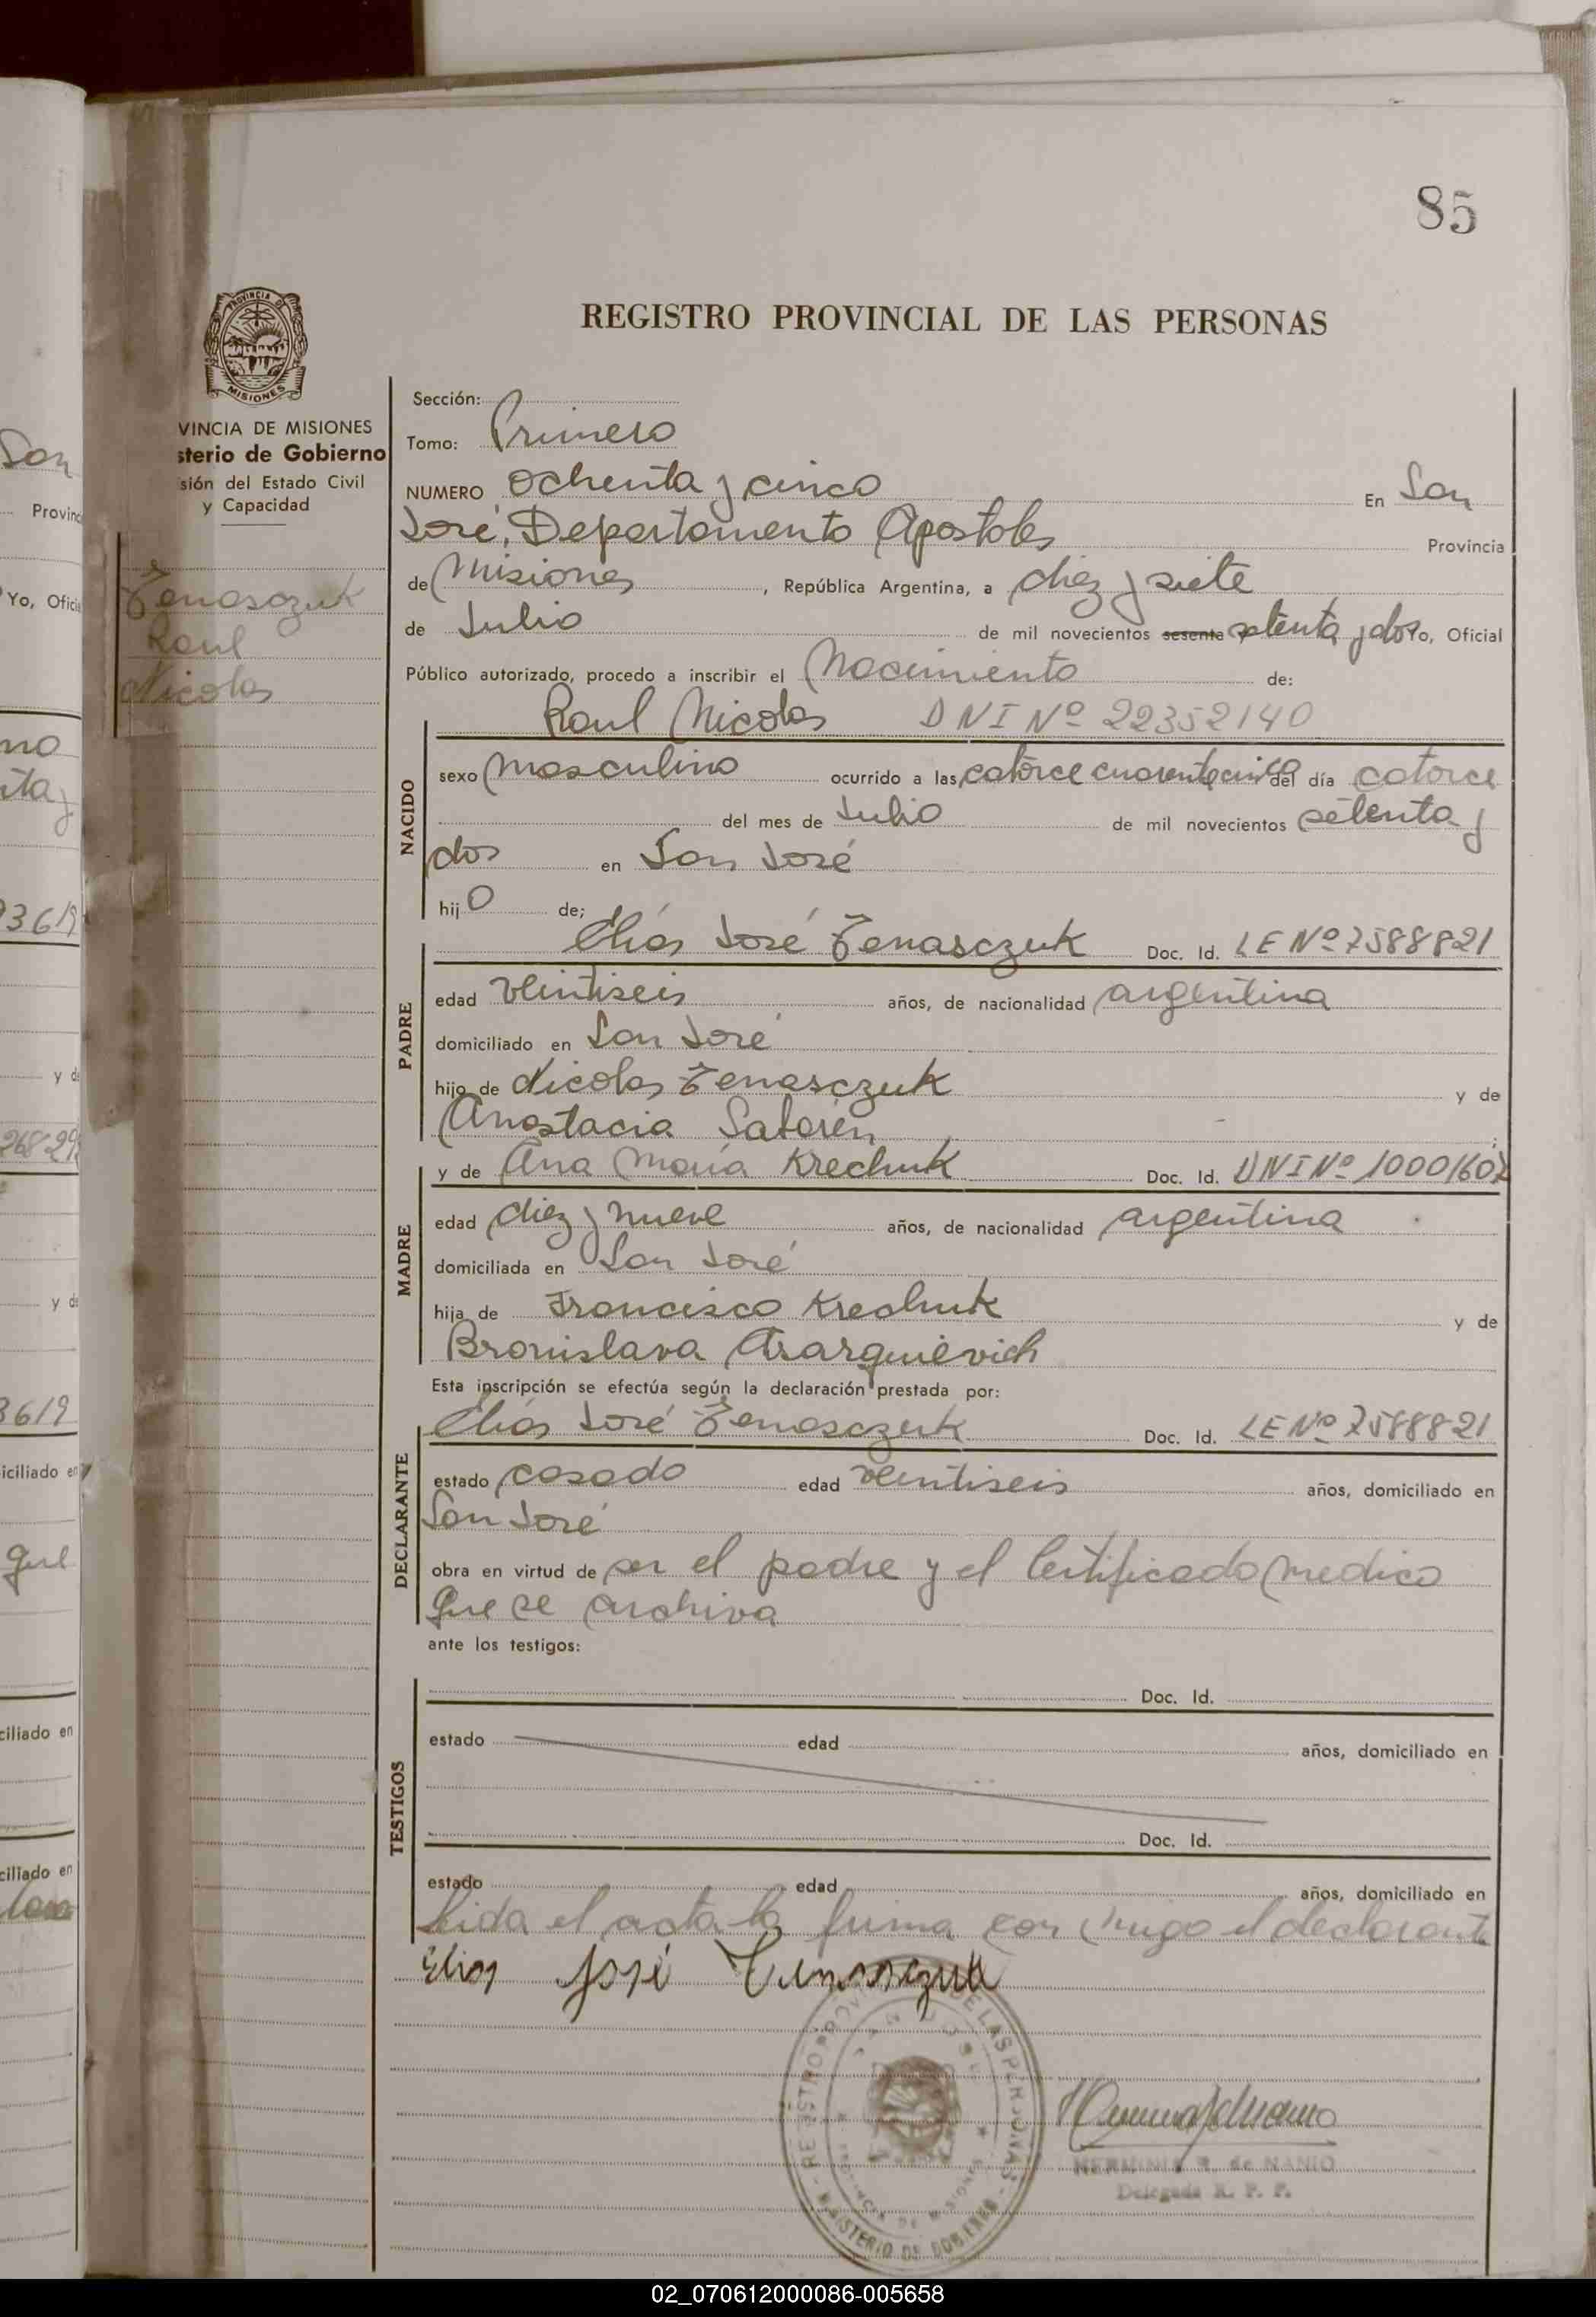 85
REGISTRO PROVINCIAL DE LAS PERSONAS
PROVINCIA DE
MISIONES
VINCIA DE MISIONES
sterio de Gobierno
sión del Estado Civil
y Capacidad
Tenasczuk
Raul
Nicolas
Sección:
Tomo: Primero
NUMERO ochenta y cinco En San
José, Departamento Apostoles Provincia
de Misiones, República Argentina, a diez y siete
de Julio de mil novecientos sesenta setenta y dos Yo, Oficial
Público autorizado, procedo a inscribir el Nacimiento de:
Raul Nicolas DNI Nº 22352140
NACIDO
sexo masculino ocurrido a las catorce cuarenta cinco del día catorce
del mes de Julio de mil novecientos setenta y
dos en San José
hijo de;
Elias José Tenasczuk Doc. Id. LE Nº 7588821
PADRE
edad veintiseis años, de nacionalidad argentina
domiciliado en San José
hijo de Nicolas Tenasczuk y de
Anastacia ;
y de Ana Maria Krechuk Doc. Id. DNI Nº 1000160
MADRE
edad diez y nueve años, de nacionalidad argentina
domiciliada en San José
hija de Francisco Krechuk y de
Bronislava
Esta inscripción se efectúa según la declaración prestada por:
Elias José Tenasczuk Doc. Id. LE Nº 7588821
DECLARANTE
estado casado edad veintiseis años, domiciliado en
San José
obra en virtud de ser el padre y el Certificado medico
que se archiva
ante los testigos:
TESTIGOS
Doc. Id.
estado edad años, domiciliado en
Doc. Id.
estado edad años, domiciliado en
Leida el acta la firma con migo el declarante
Elias José Tenasczuk
REGISTRO PROVINCIAL DE LAS PERSONAS
MINISTERIO DE GOBIERNO
HERMINIA R. de NANIO
Delegada R. P. P.
02_070612000086-005658